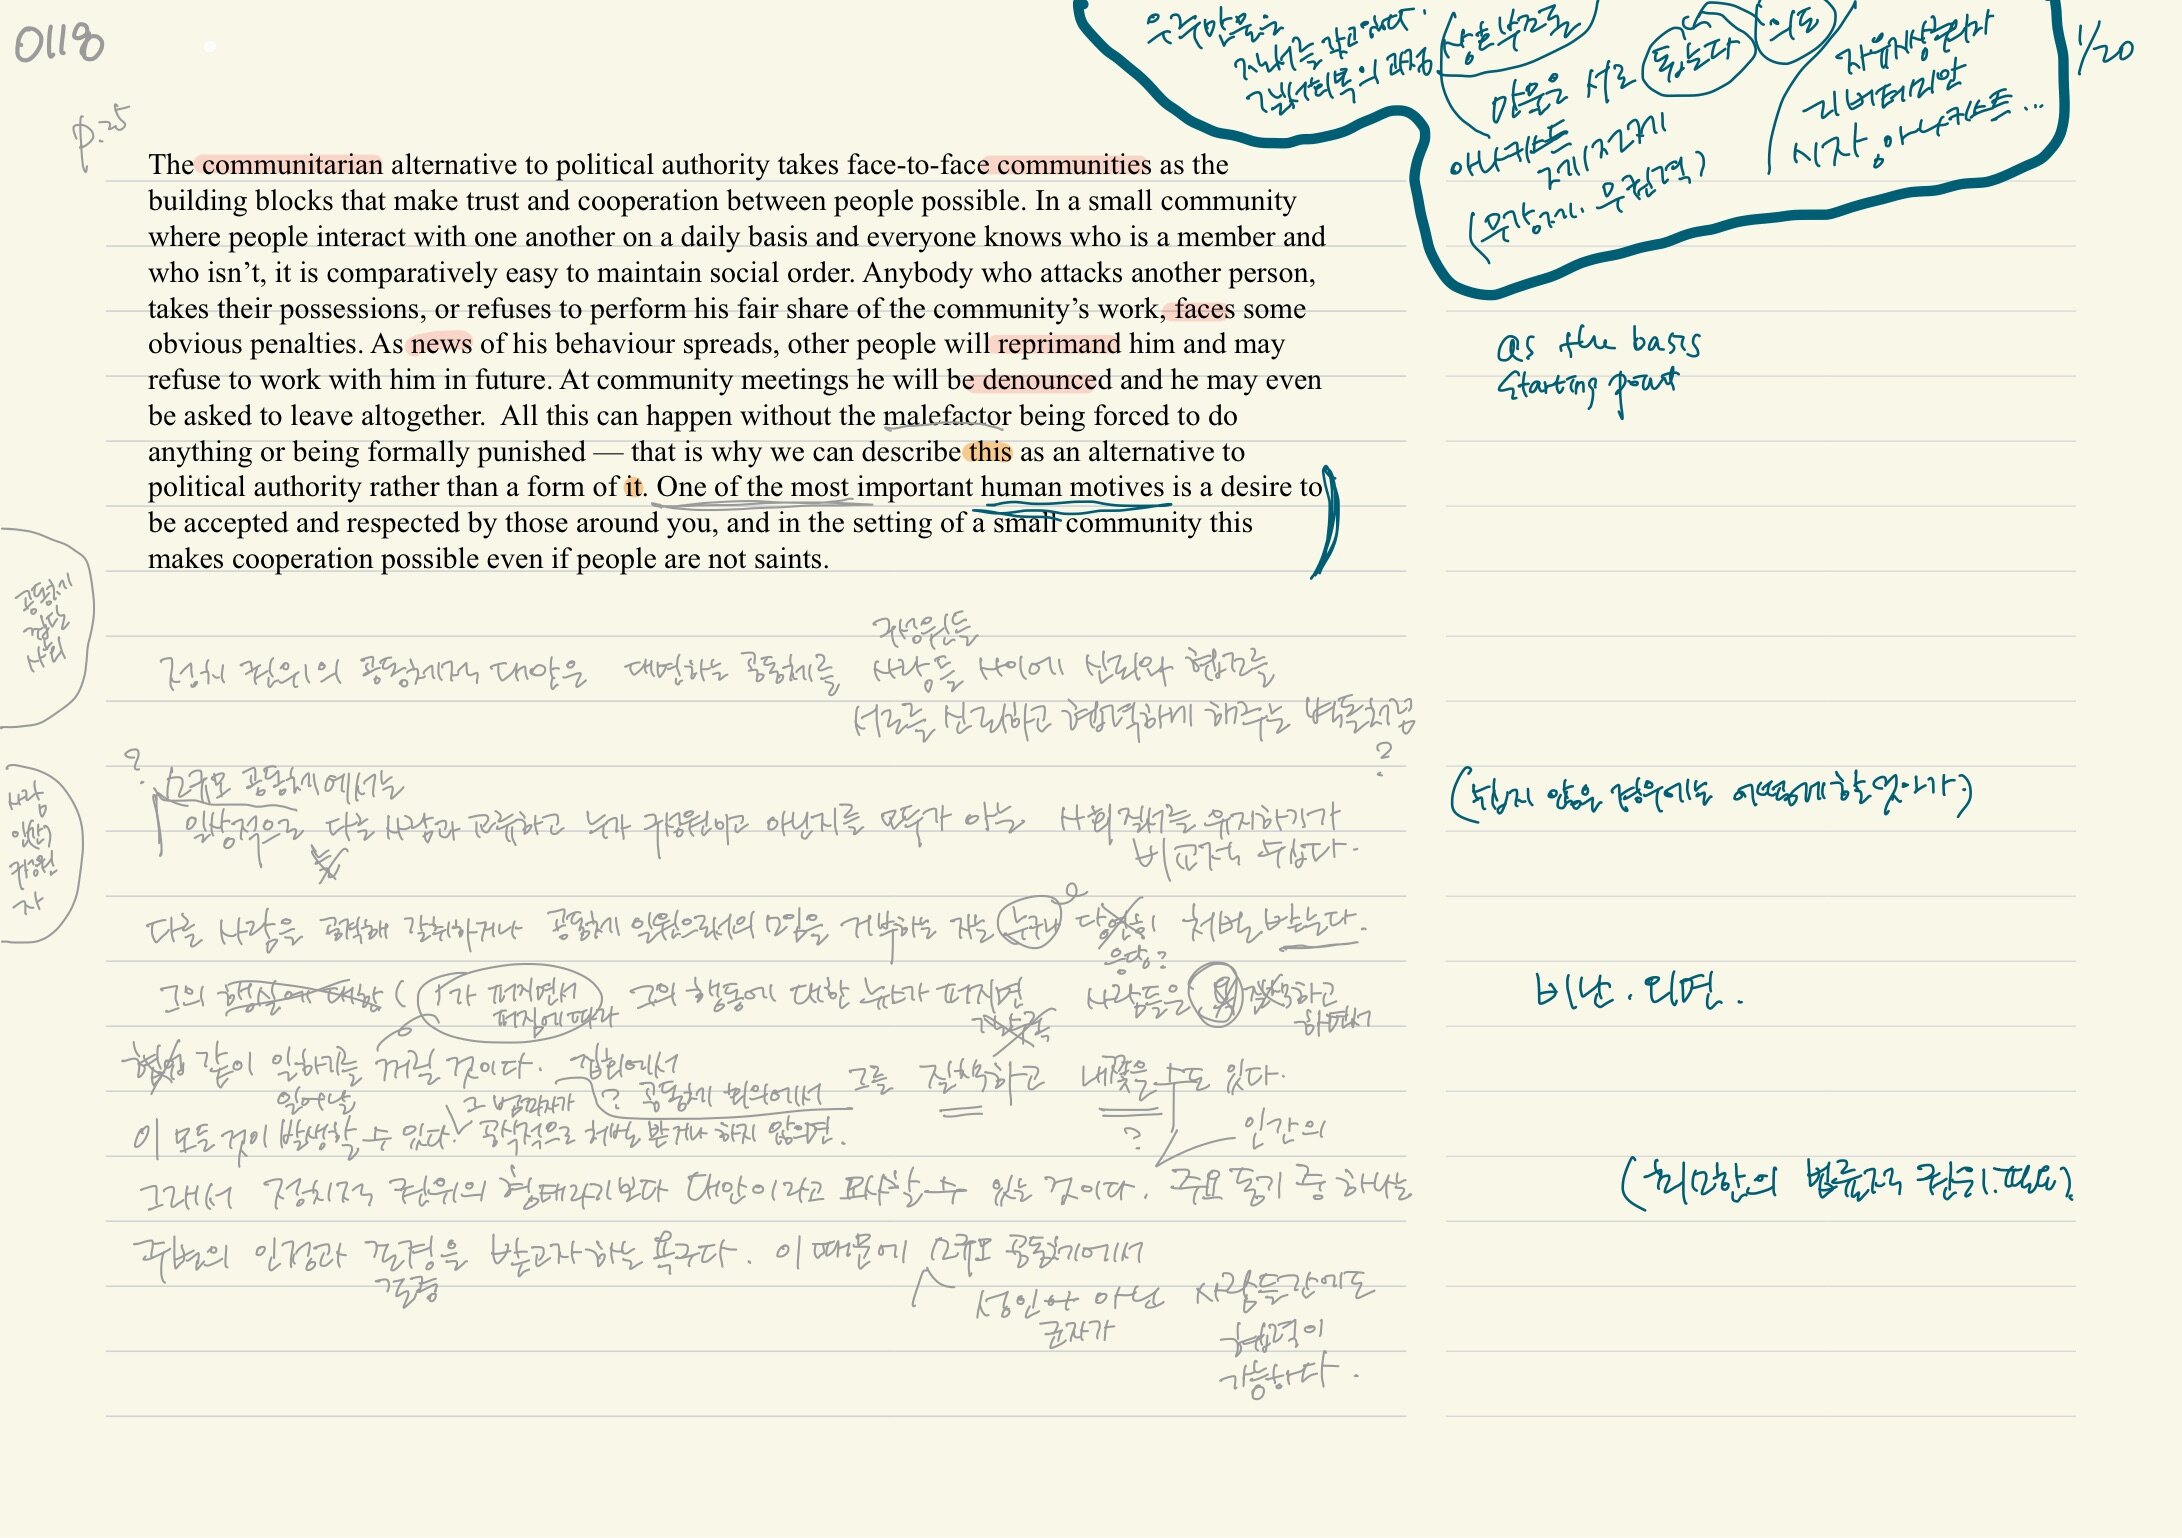 0118
p.25
우주만물은
질서를 갖고 있다.
그 질서 회복의 과정
상호부조론
만물은 서로 돕는다
의도
자유지상주의자
리버테리안
시장 아나키스트...
1/20
아나키스트
(무강제. 무권력)
The communitarian alternative to political authority takes face-to-face communities as the
building blocks that make trust and cooperation between people possible. In a small community
where people interact with one another on a daily basis and everyone knows who is a member and
who isn’t, it is comparatively easy to maintain social order. Anybody who attacks another person,
takes their possessions, or refuses to perform his fair share of the community’s work, faces some
obvious penalties. As news of his behaviour spreads, other people will reprimand him and may
refuse to work with him in future. At community meetings he will be denounced and he may even
be asked to leave altogether. All this can happen without the malefactor being forced to do
anything or being formally punished — that is why we can describe this as an alternative to
political authority rather than a form of it. One of the most important human motives is a desire to
be accepted and respected by those around you, and in the setting of a small community this
makes cooperation possible even if people are not saints.
as the basis
starting point
공동체
집단
사회
구성원들
정치 권위의 공동체적 대안은 대면하는 공동체를 사람들 사이에 신뢰와 협조를
서로를 신뢰하고 협력하게 해주는 벽돌처럼
?
?
소규모 공동체에서는
일상적으로 다른 사람과 교류하고 누가 구성원이고 아닌지를 모두가 아는 사회 질서를 유지하기가
비교적 쉽다.
(쉽지 않을 경우에는 어떻게 할 것인가)
사람
인간
구성원
자
다른 사람을 공격해 갈취하거나 공동체 일원으로서의 모임을 거부하는 자는 누구나 당연히 처벌 받는다.
응당?
그의 행실에 대한 ( 가 퍼지면서 그의 행동에 대한 뉴스가 퍼지면 사람들은 질책하고
퍼짐에 따라
하면서
비난. 외면.
같이 일하기를 꺼릴 것이다. 집회에서 그를 질책하고 내쫓을 수도 있다.
일어날
그 범죄자가
? 공동체 회의에서
이 모든 것이 발생할 수 있다. 공식적으로 처벌 받거나 하지 않으면.
?
인간의
그래서 정치적 권위의 형태라기보다 대안이라고 묘사할 수 있는 것이다. 주요 동기 중 하나는
(최소한의 법률적 권위. 필요)
주변의 인정과 존경을 받고자 하는 욕구다. 이 때문에 소규모 공동체에서
존중
성인이 아닌 사람들간에도
군자가
협력이
가능하다.